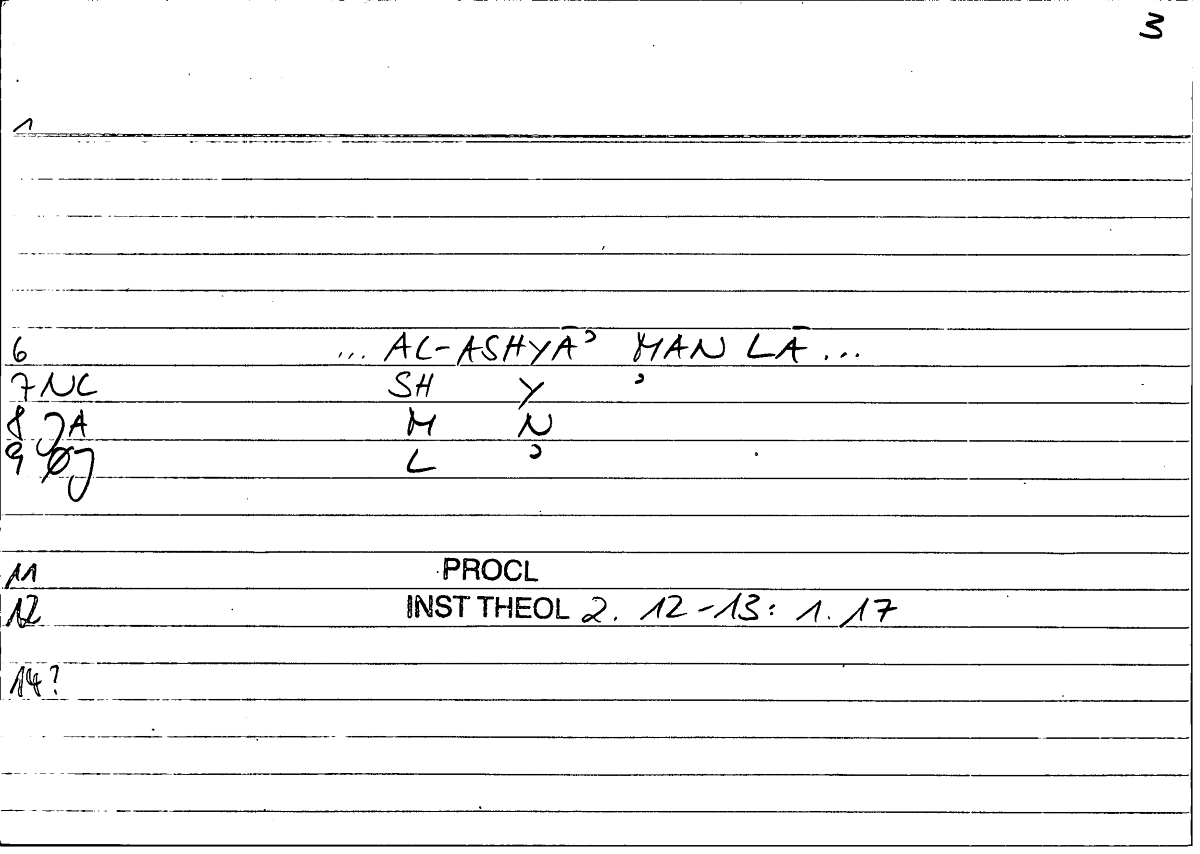 3
1
6 ... AL-ASHYĀʾ MAN LĀ ...
7 NC SH Y ʾ
8 JA M N
9 ØJ L ʾ
11 PROCL
12 INST THEOL 2. 12-13: 1. 17
14?